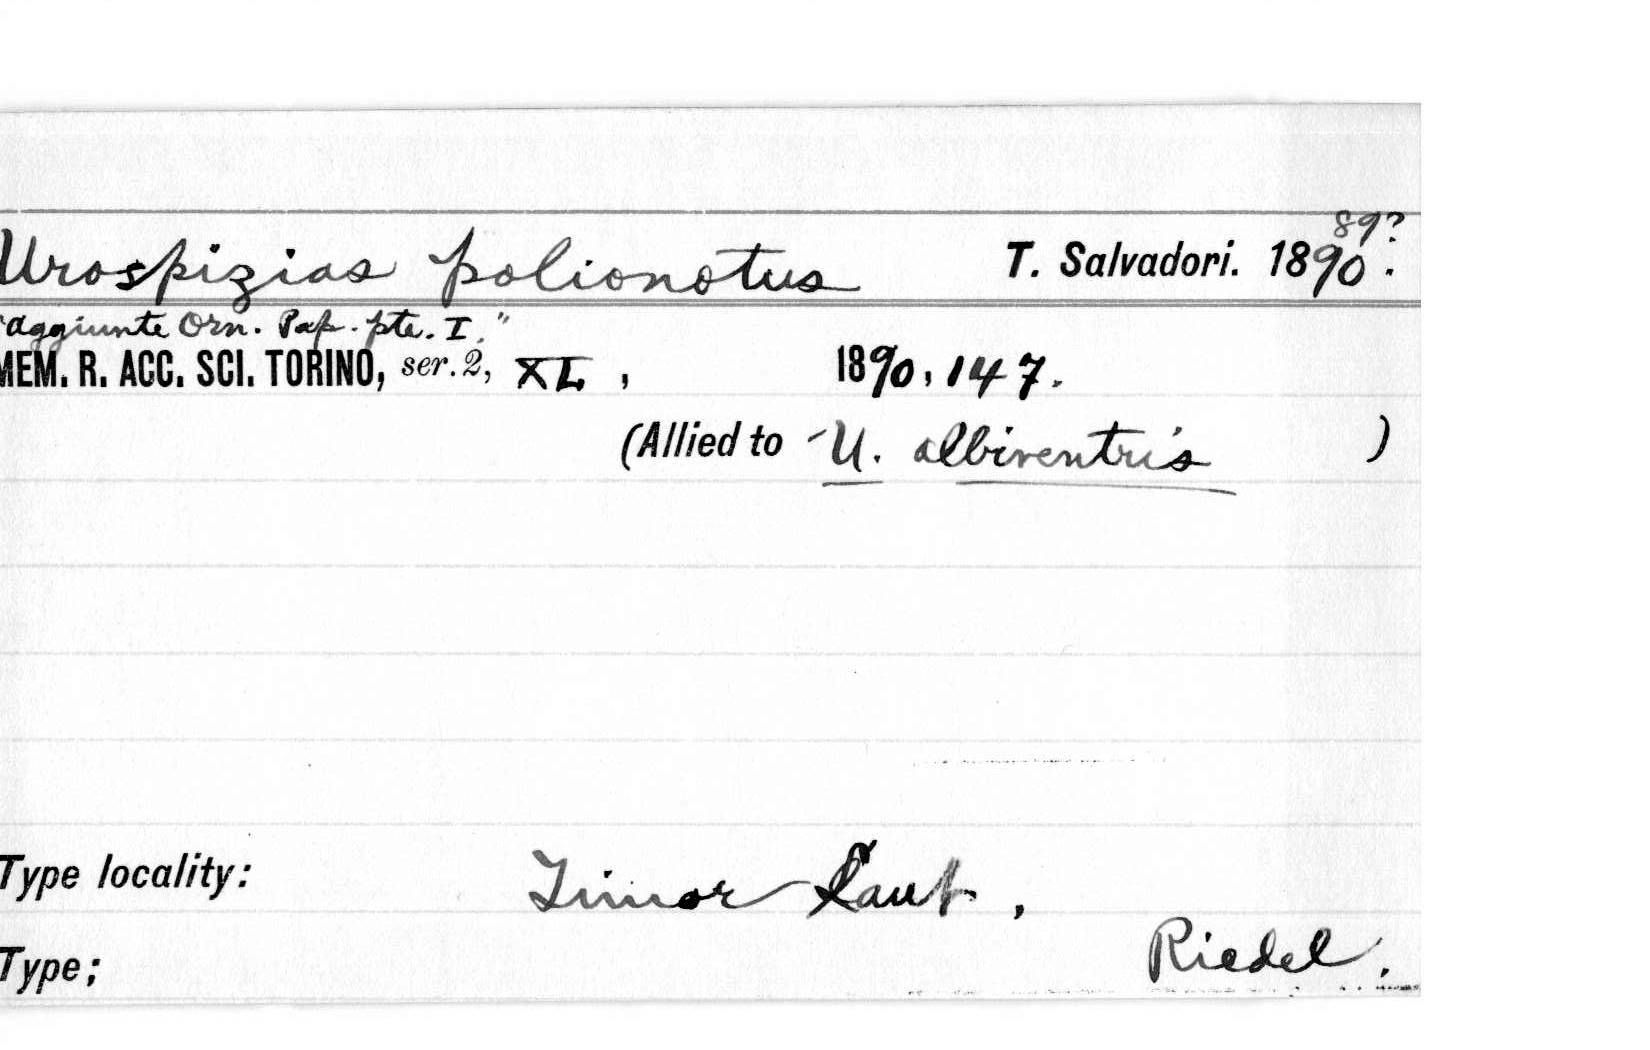 89?
Urospizias polionotus T. Salvadori. 1890.
"Aggiunte Orn. Pap. pte. I."
MEM. R. ACC. SCI. TORINO, ser. 2, XL, 1890, 147.
(Allied to U. albiventris )
Type locality: Timor Laut,
Riedel.
Type;